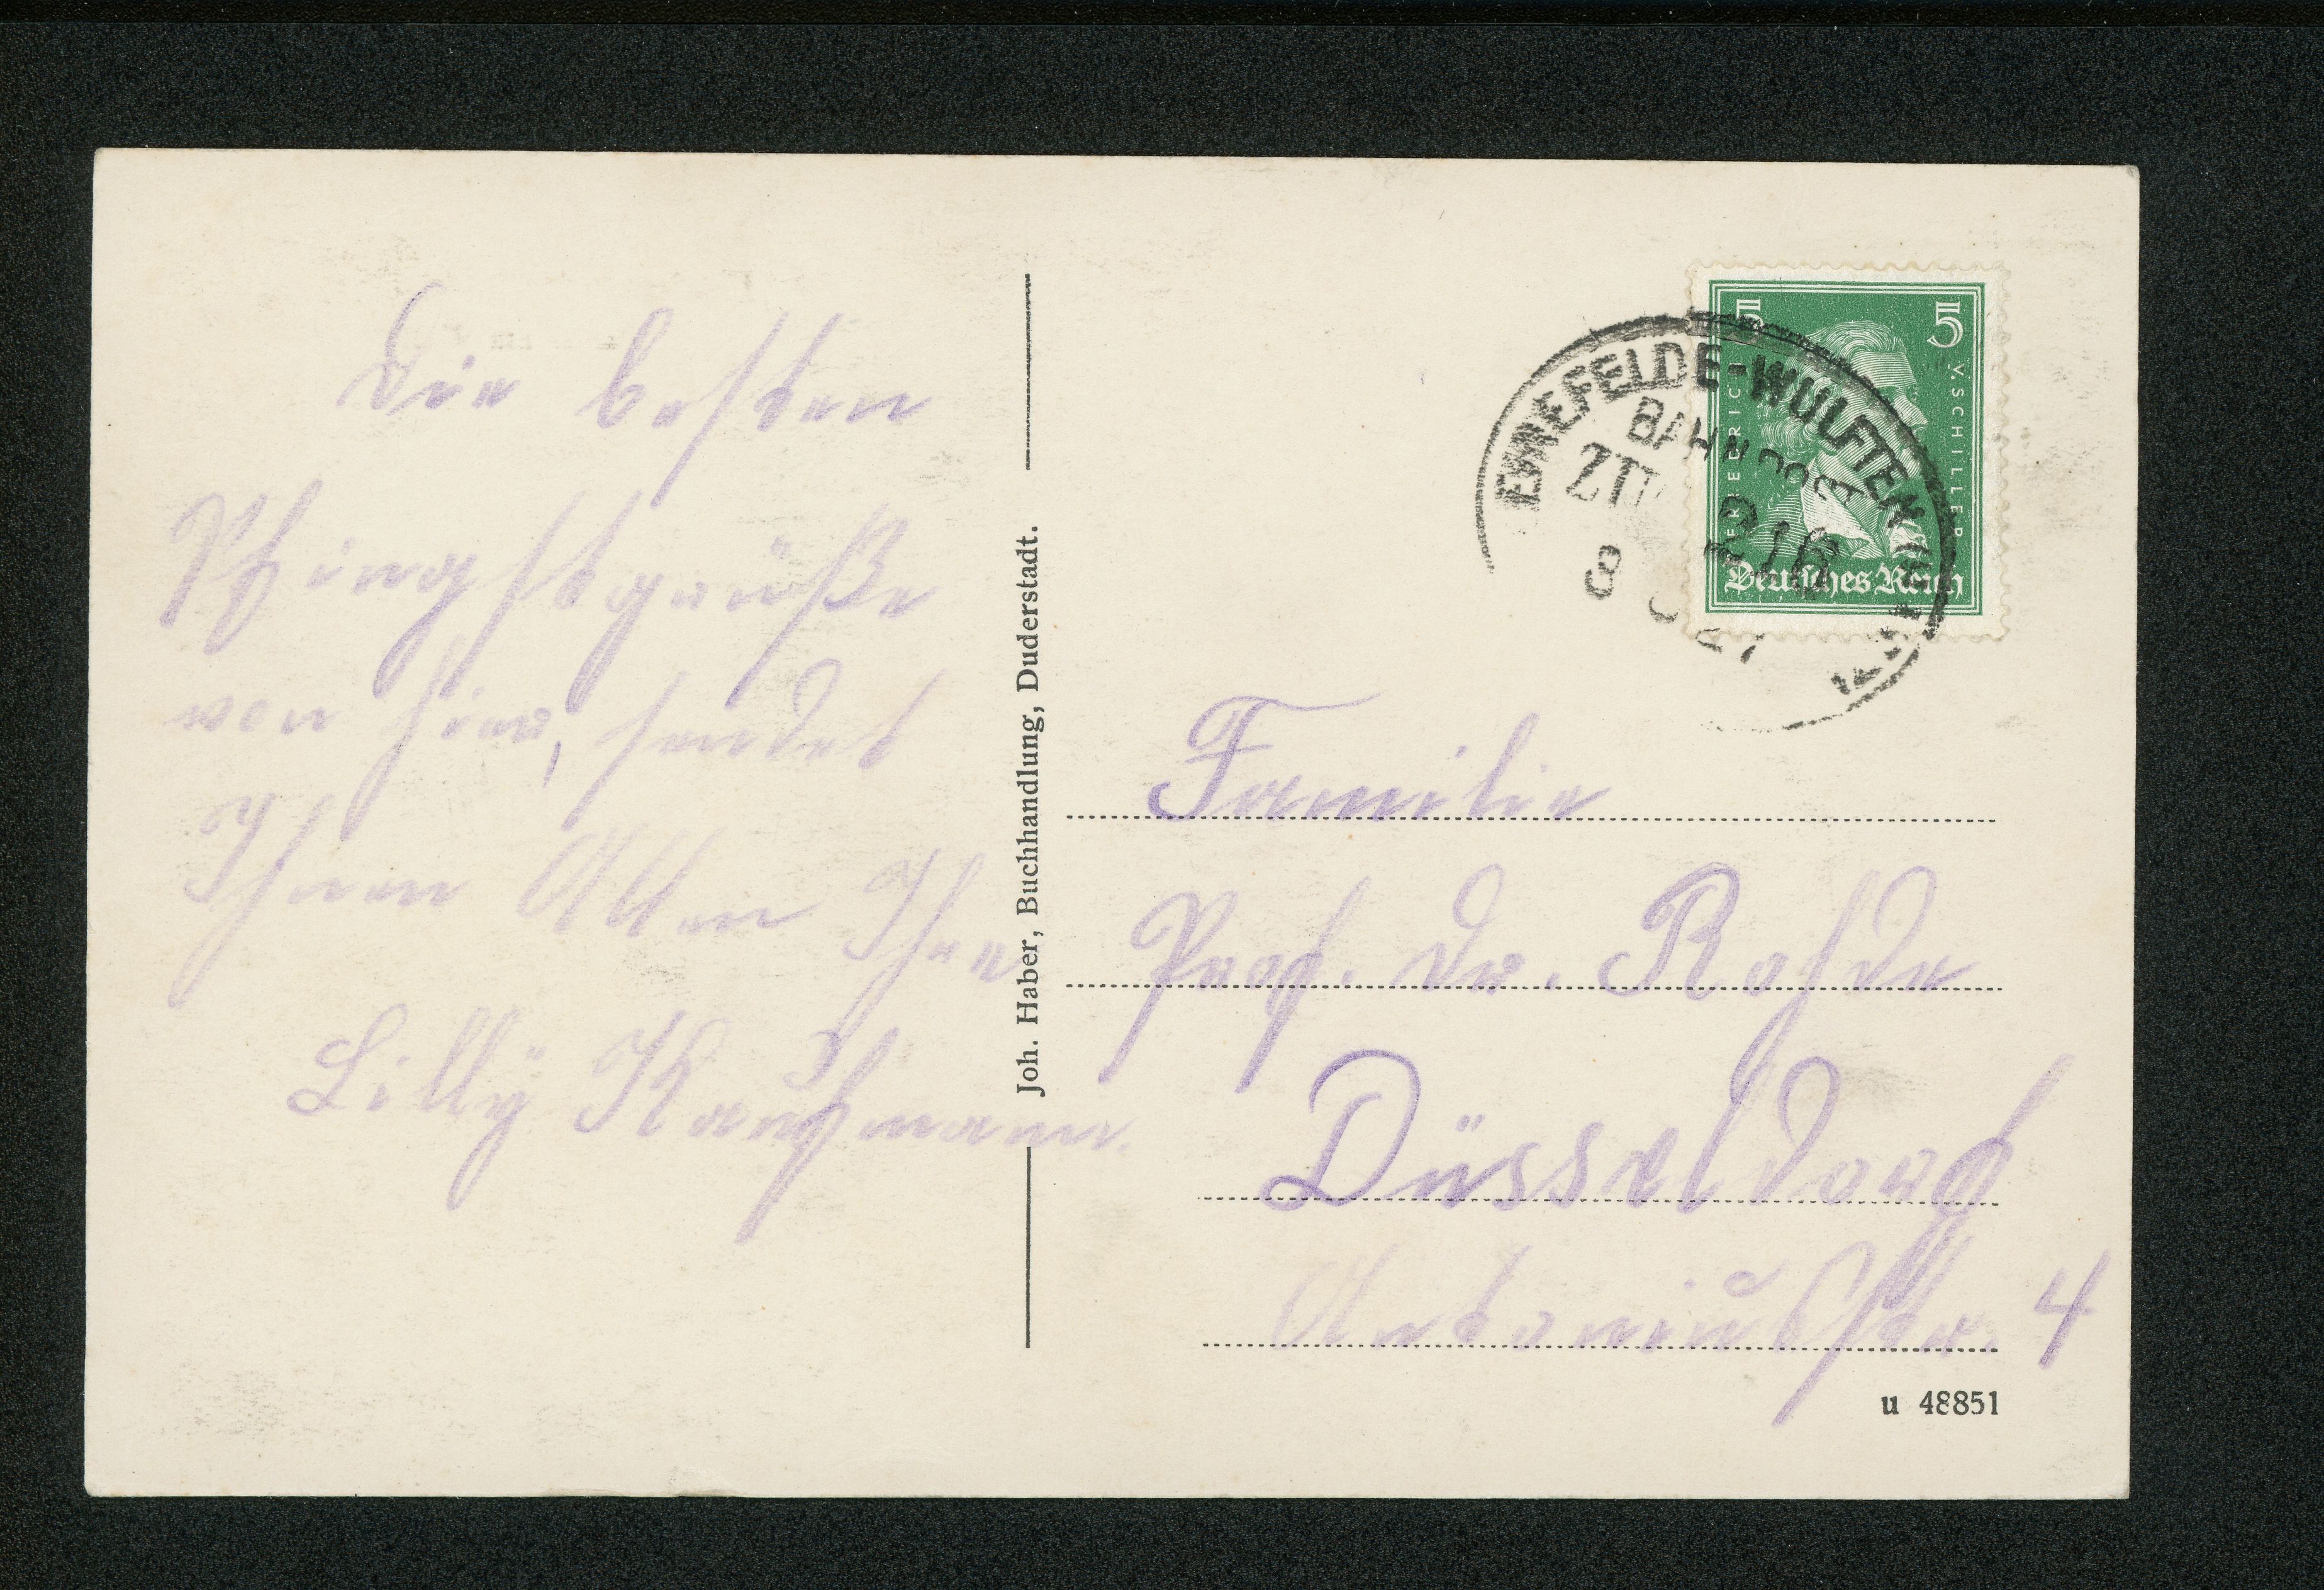 Die besten
Pfingstgrüße
von hier, sendet
Ihnen Allen Ihre
Lilly Kaufmann.
Joh. Haber, Buchhandlung, Duderstadt.
5 5
FRIEDRICH V. SCHILLER
Deutsches Reich
LEINEFELDE-WULFTEN
BAHNPOST
ZUG
216
8 27
Familie
Prof. Dr. Rohde
Düsseldorf
Antoniusstr. 4
u 48851